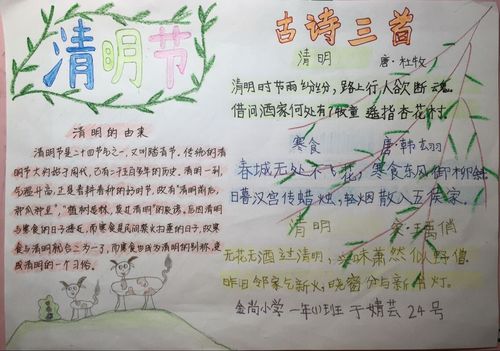 清明节
清明的由来
清明节是二十四节气之一,又叫踏青节。传统的清
明节大约始于周代,已有二千五百多年的历史。清明一到,
气温升高,正是春耕春种的好时节,故有"清明前后,
种瓜种豆","植树造林,莫过清明"的农谚。后因清明
与寒食的日子接近,而寒食是民间禁火扫墓的日子,故寒
食与清明就合二为一了,而寒食也成为清明的别称,变
成清明的一个习俗。
古诗三首
清明 唐·杜牧
清明时节雨纷纷,路上行人欲断魂。
借问酒家何处有?牧童遥指杏花村。
寒食 唐·韩翃
春城无处不飞花,寒食东风御柳斜
日暮汉宫传蜡烛,轻烟散入五侯家。
清明 宋·王禹偁
无花无酒过清明,兴味萧然似野僧
昨日邻家乞新火,晓窗分与新 灯。
金尚小学 一年(1)班 于婧芸 24号